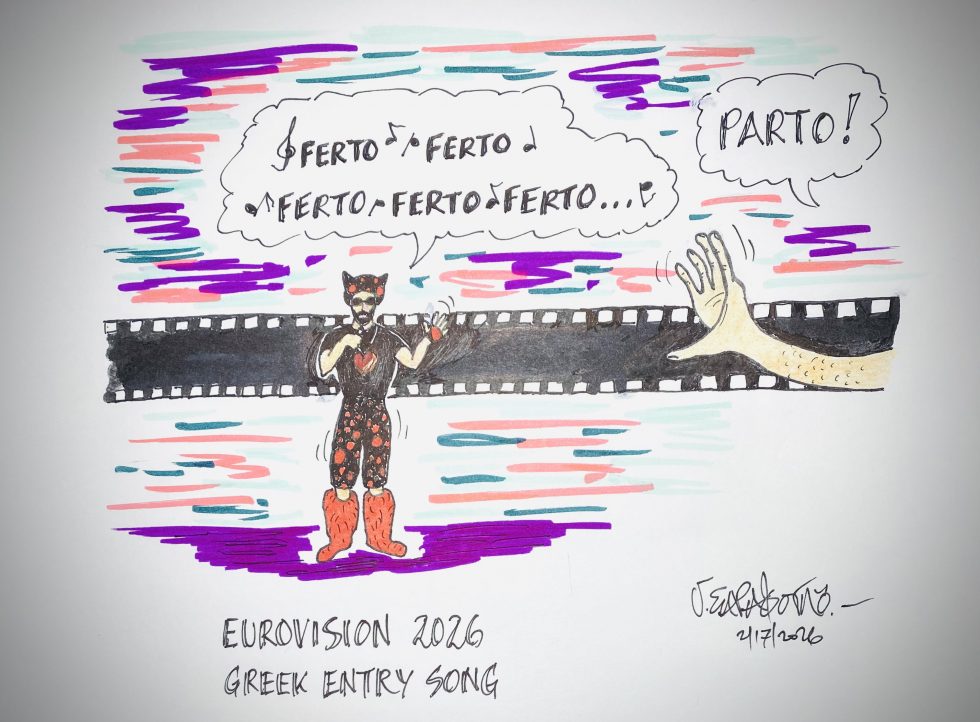 FERTO FERTO
FERTO FERTO FERTO...
PARTO!
EUROVISION 2026
GREEK ENTRY SONG
2/17/2026